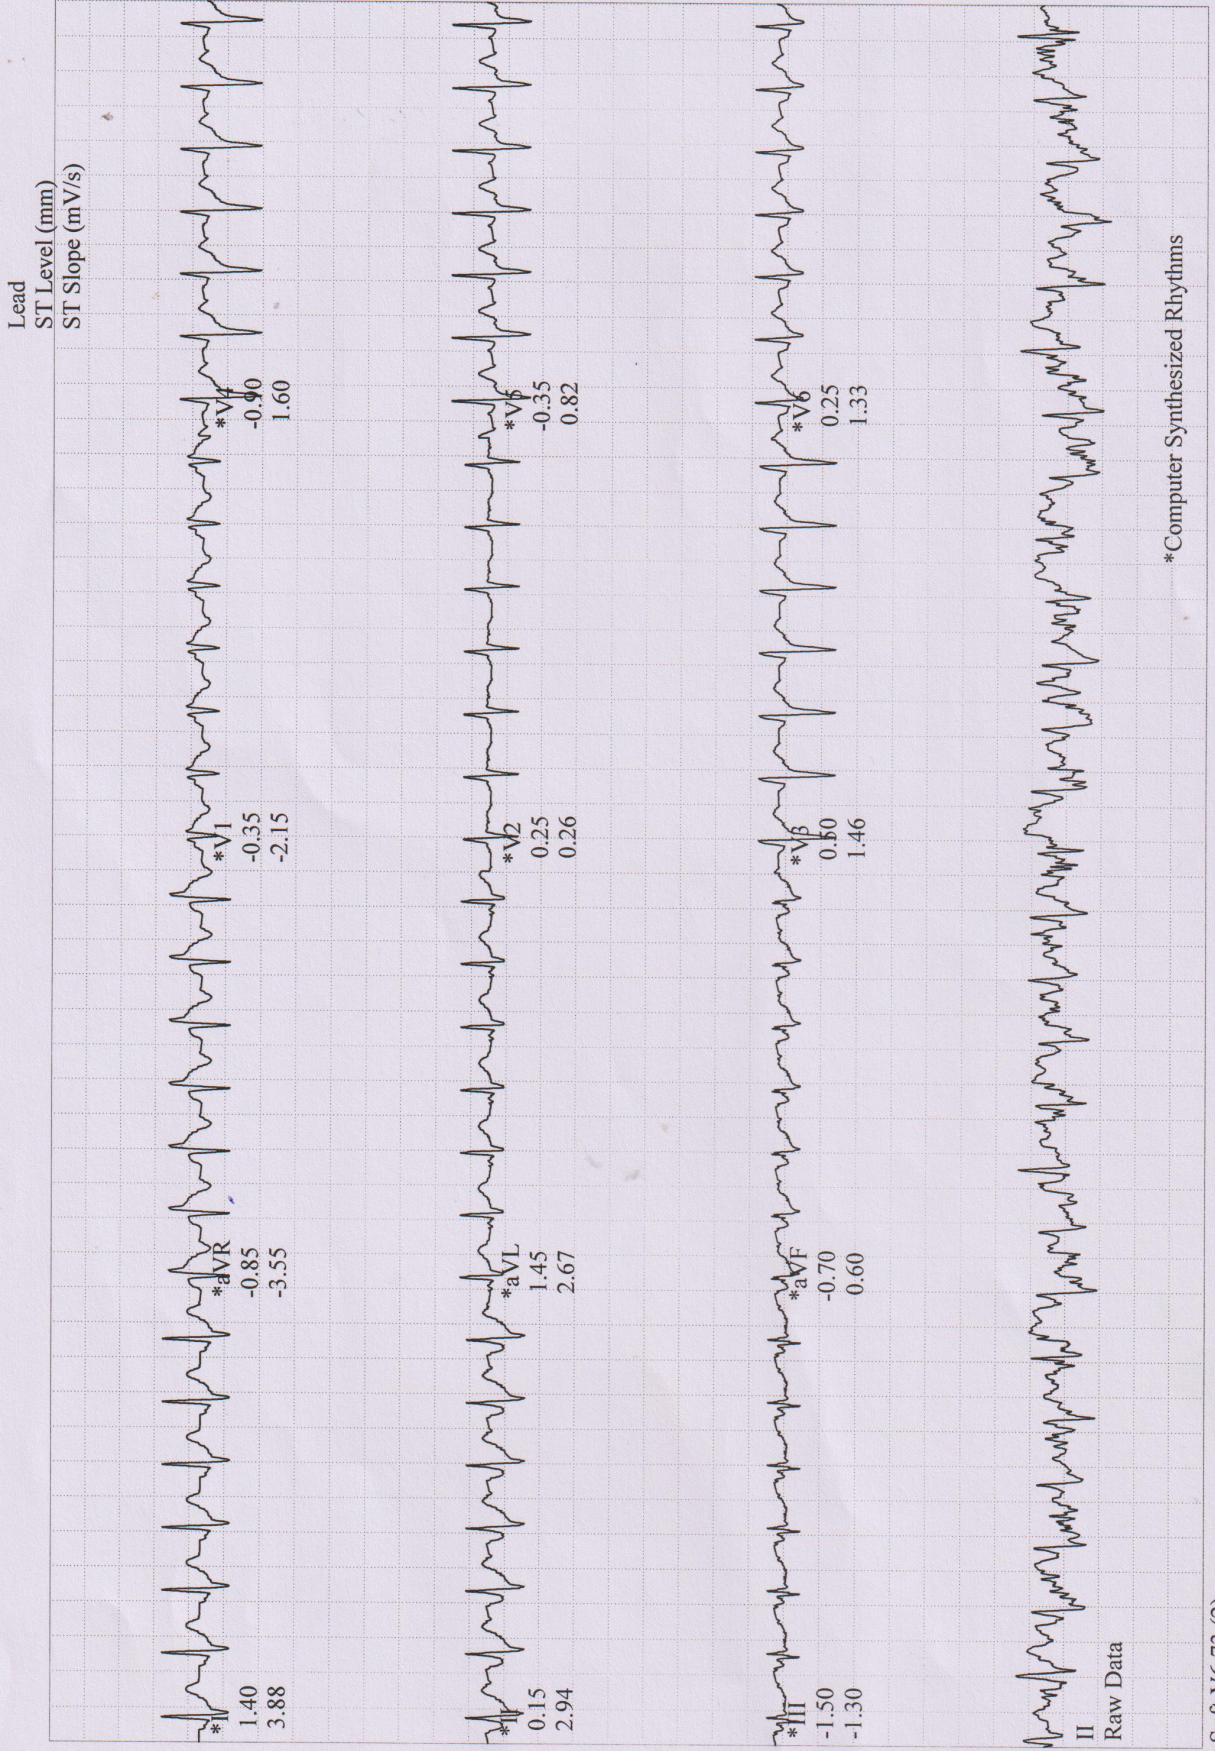 Lead
ST Level (mm)
ST Slope (mV/s)
*I
1.40
3.88
*aVR
-0.85
-3.55
*V1
-0.35
-2.15
*V4
-0.90
1.60
*II
0.15
2.94
*aVL
1.45
2.67
*V2
0.25
0.26
*V5
-0.35
0.82
*III
-1.50
-1.30
*aVF
-0.70
0.60
*V3
0.50
1.46
*V6
0.25
1.33
II
Raw Data
*Computer Synthesized Rhythms